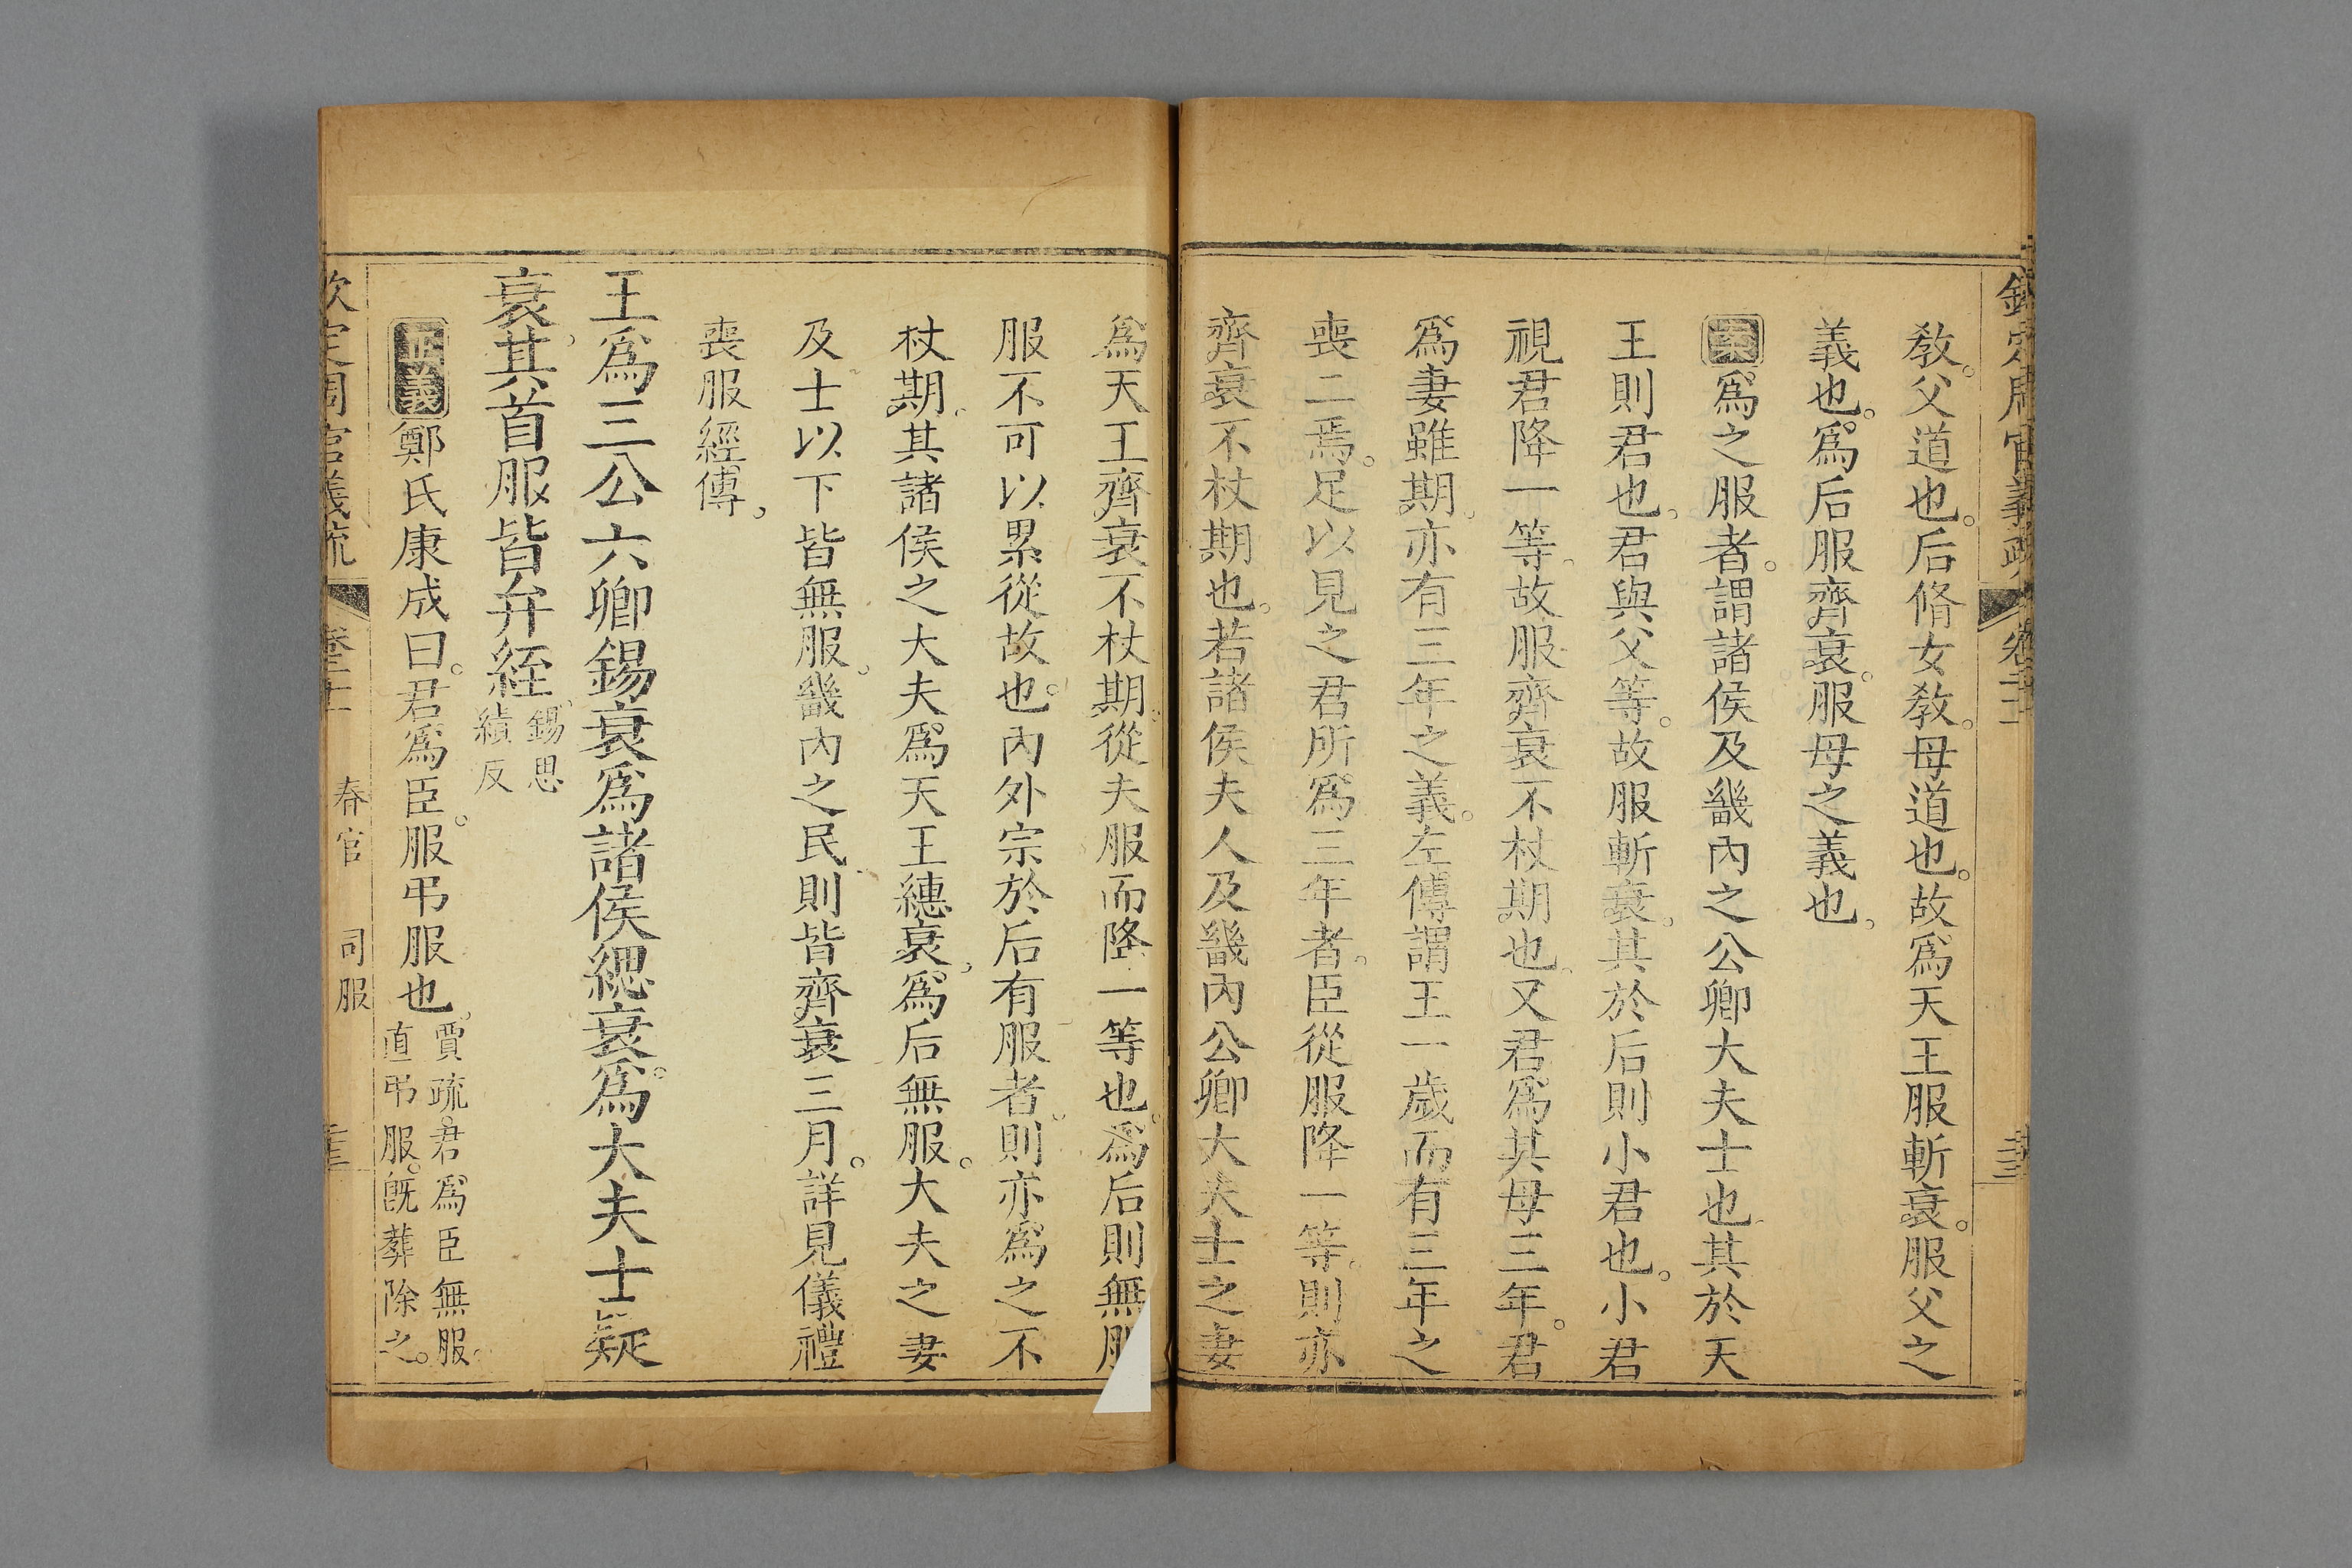 欽定周官義疏 卷二十一
教。父道也。后脩女教。母道也。故爲天王服斬衰。服父之
義也。爲后服齊衰。服母之義也。
案爲之服者。謂諸侯及畿內之公卿大夫士也。其於天
王則君也。君與父等。故服斬衰。其於后則小君也。小君
視君降一等。故服齊衰不杖期也。又君爲其母三年。君
爲妻雖期。亦有三年之義。左傳謂王一歲而有三年之
喪二焉。足以見之君所爲三年者。臣從服降一等。則亦
齊衰不杖期也。若諸侯夫人及畿內公卿大夫士之妻
爲天王齊衰不杖期。從夫服而降一等也。爲后則無服
服不可以累從故也。內外宗於后有服者。則亦爲之不
杖期。其諸侯之大夫爲天王繐衰。爲后無服。大夫之妻
及士以下皆無服。畿內之民。則皆齊衰三月。詳見儀禮
喪服經傳。
王爲三公六卿錫衰爲諸侯緦衰爲大夫士疑
衰其首服皆弁絰錫思
績反
正義鄭氏康成曰。君爲臣。服弔服也。賈疏。君爲臣無服。
直弔服。旣葬除之。
欽定周官義疏 卷二十一 春官 司服